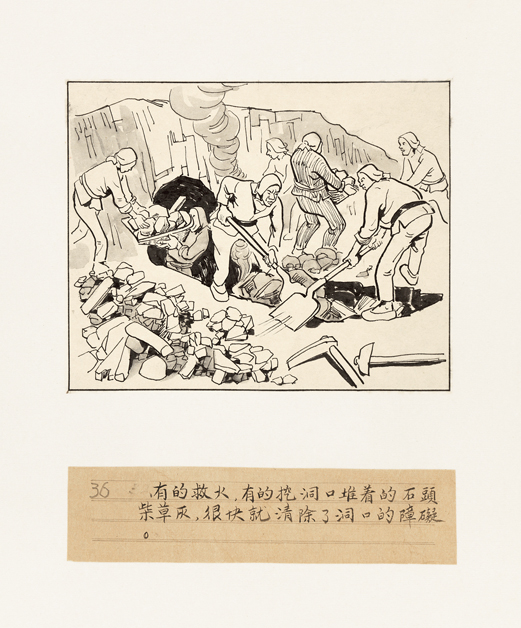 36 有的救火，有的挖洞口堆着的石頭
柴草灰，很快就清除了洞口的障礙
。